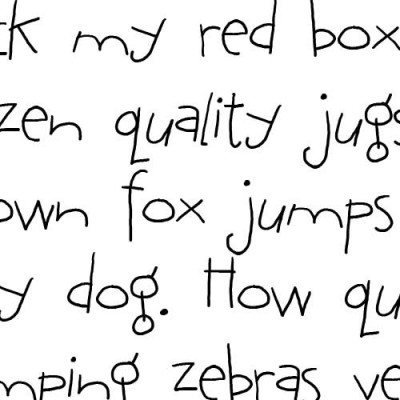 ck my red box
zen quality jugs
own fox jumps
y dog. How qu
mping zebras ve